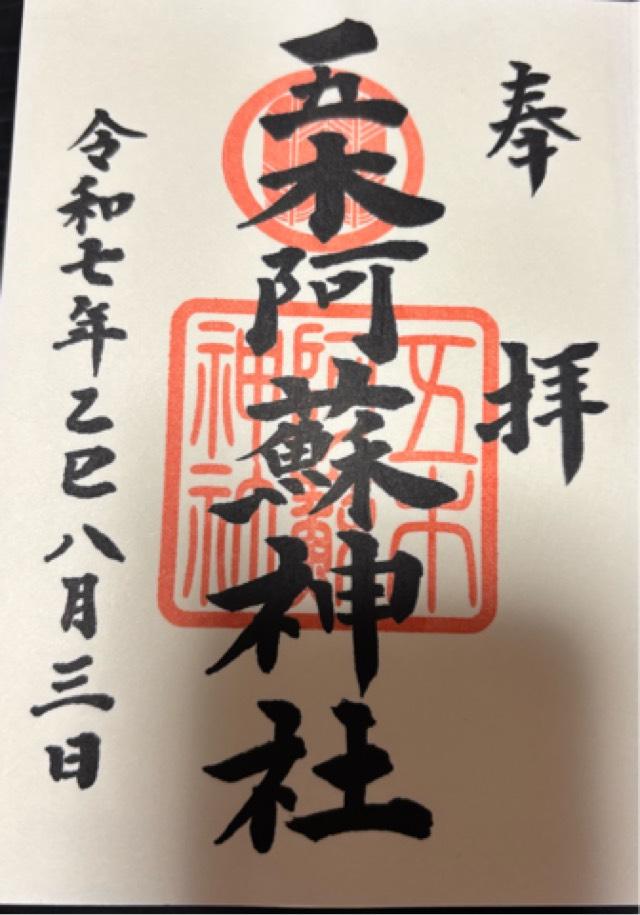 奉拝
五木阿蘇神社
五木阿蘇神社
令和七年乙巳八月三日